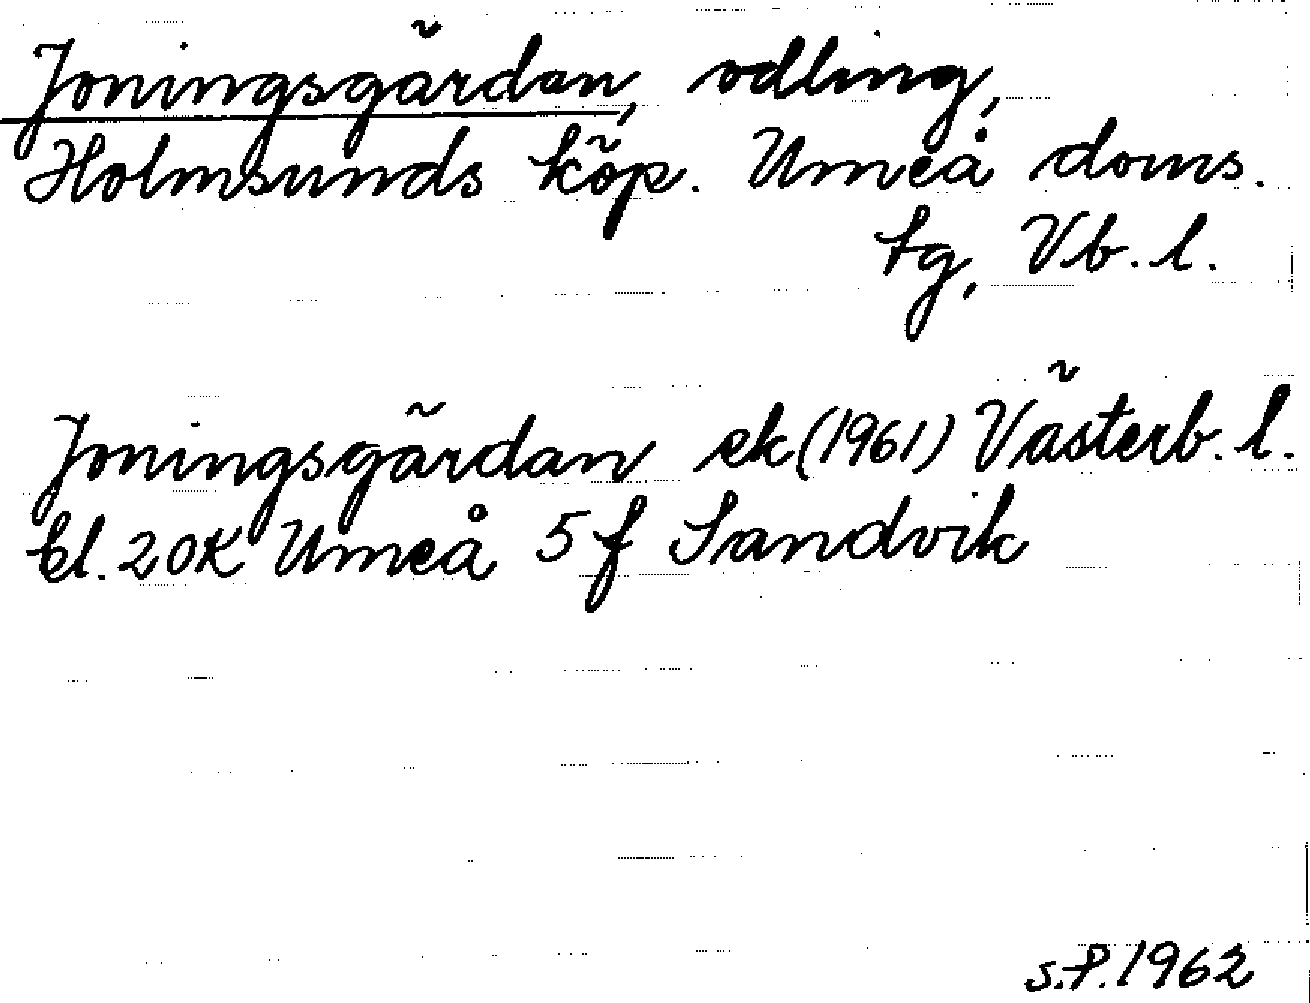 Joningsgärdan, odling,
Holmsunds köp. Umeå doms.
tg, Vb. l.
Joningsgärdan ek (1961) Västerb. l.
bl. 20K Umeå 5f Sandvik
S.P. 1962